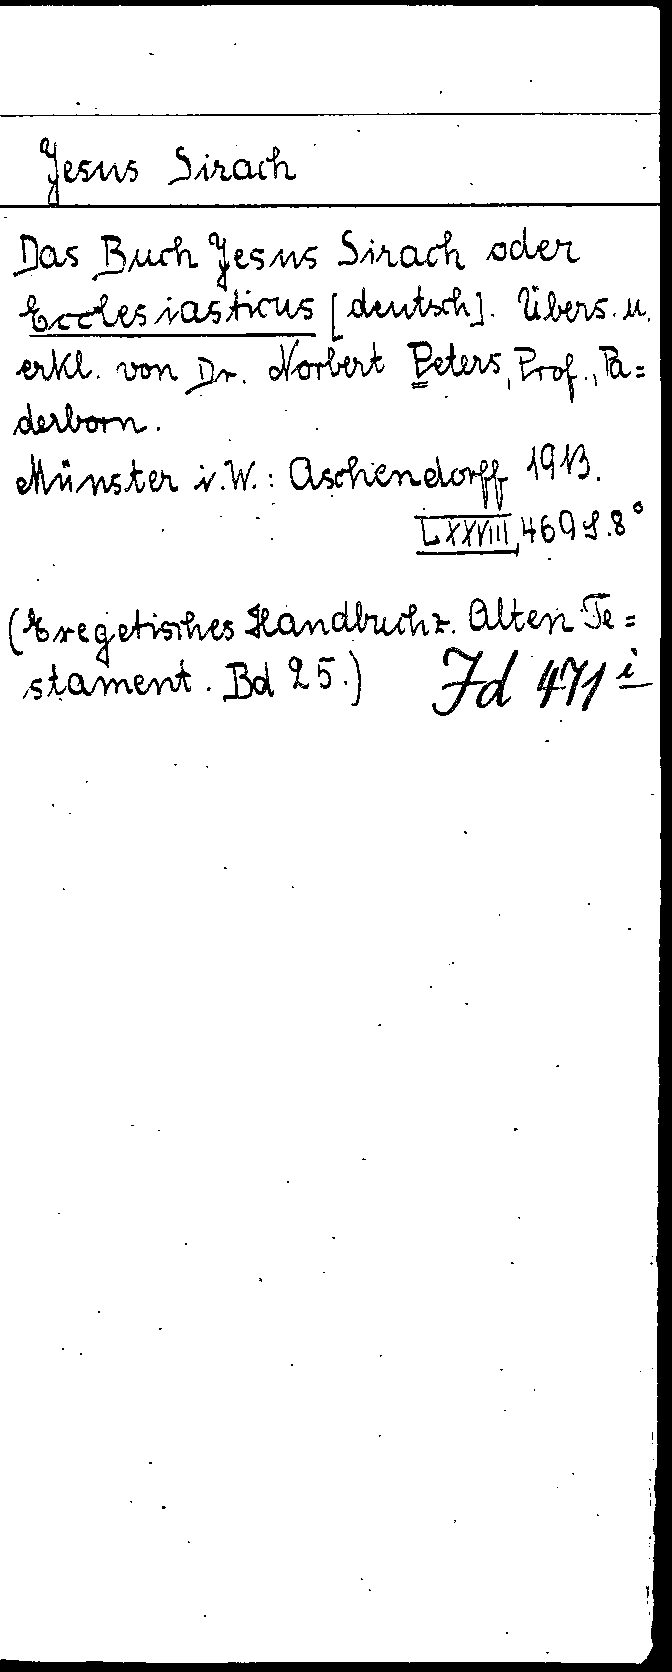 Jesus Sirach
Das Buch Jesus Sirach oder
Ecclesiasticus [deutsch]. Übers. u.
erkl. von Dr. Norbert Peters, Prof., Pa=
derborn.
Münster i. W.: Aschendorff 1913.
LXXVIII, 469 S. 8°
(Exegetisches Handbuch z. Alten Te=
stament. Bd 25.) Id 471 i